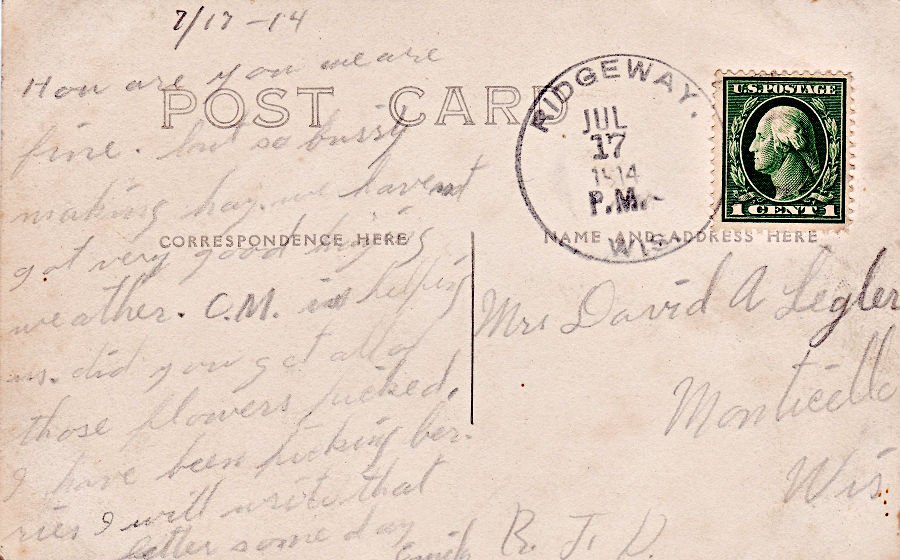 7/17-14
How are you we are
fine. but so bussy
making hay. we havent
got very good haying
weather. C.M. is helping
us. did you get all of
those flowers picked.
I have been picking ber-
ries I will write that
letter some day
POST CARD
CORRESPONDENCE HERE
RIDGEWAY.
JUL
17
1914
P.M.
WIS
U.S. POSTAGE
1 CENT 1
NAME AND ADDRESS HERE
Mrs David A Legler
Monticello
Wis
R. F. D.